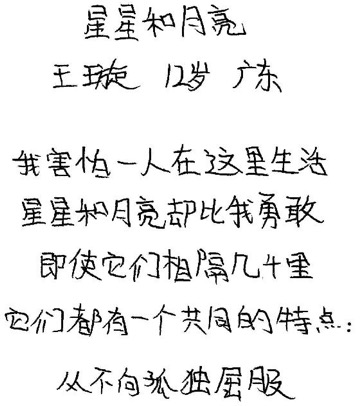 星星和月亮
王璇 12岁 广东
我害怕一人在这里生活
星星和月亮却比我勇敢
即使它们相隔几千里
它们都有一个共同的特点：
从不向孤独屈服